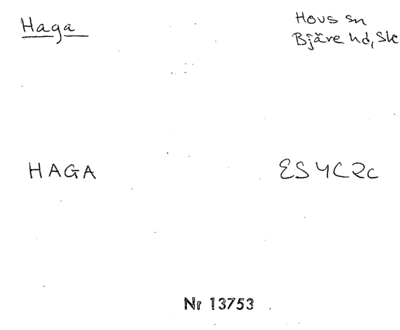 Haga
Hovs sn
Bjäre hd, Sk
HAGA
ES 4C2c
Nr 13753